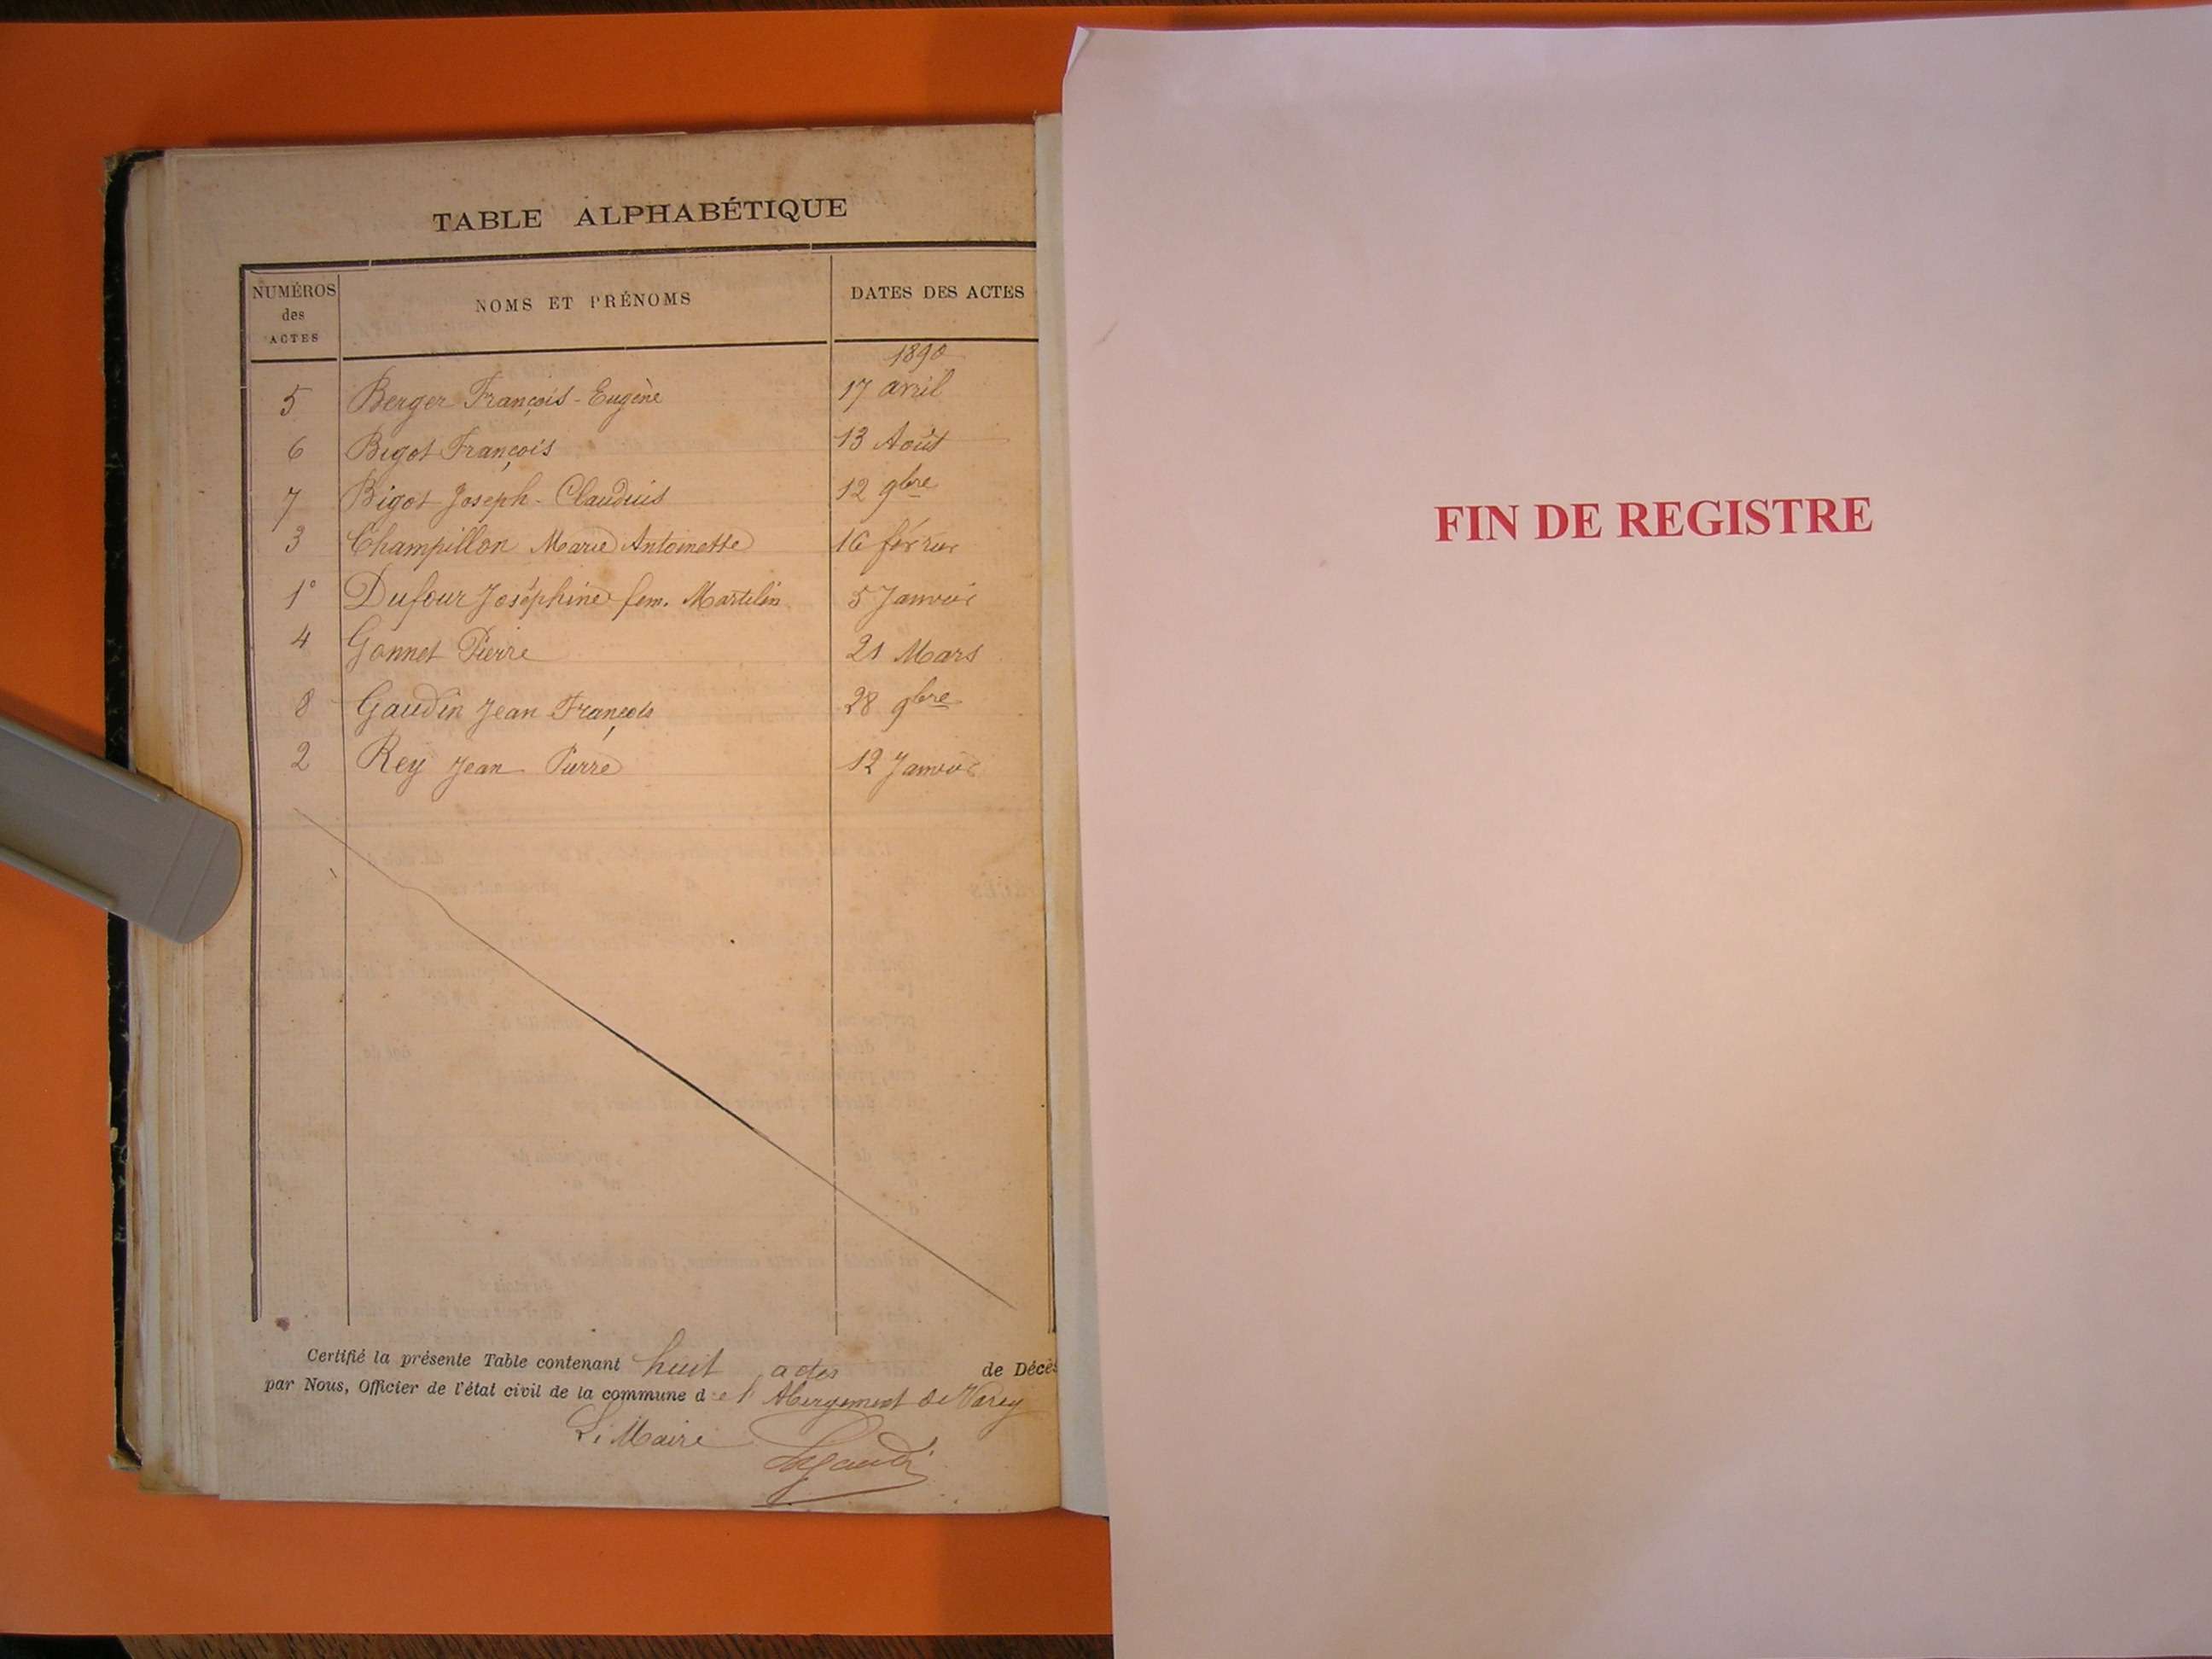 TABLE ALPHABÉTIQUE
NUMÉROS des ACTES NOMS ET PRÉNOMS DATES DES ACTES
1890
5 Berger François-Eugène 17 avril
6 Bigot François 13 Août
7 Bigot Joseph-Claudius 12 9bre
3 Champillon Marie Antoinette 16 février
1° Dufour Joséphine fem. Martelin 5 Janvier
4 Gonnet Pierre 21 Mars
8 Gaudin Jean François 28 9bre
2 Rey Jean Pierre 12 Janvier
Certifié la présente Table contenant huit actes de Décès
par Nous, Officier de l'état civil de la commune de l'Abergement de Varey
Le Maire
FIN DE REGISTRE